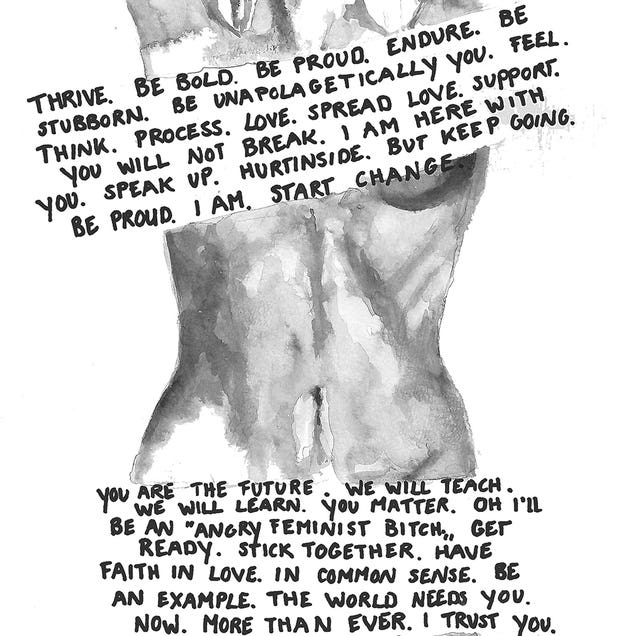 THRIVE. BE BOLD. BE PROUD. ENDURE. BE
STUBBORN. BE UNAPOLAGETICALLY YOU. FEEL.
THINK. PROCESS. LOVE. SPREAD LOVE. SUPPORT.
YOU WILL NOT BREAK. I AM HERE WITH
YOU. SPEAK UP. HURTINSIDE. BUT KEEP GOING.
BE PROUD. I AM. START CHANGE.
YOU ARE THE FUTURE. WE WILL TEACH.
WE WILL LEARN. YOU MATTER. OH I'll
BE AN "ANGRY FEMINIST BITCH„ GET
READY. STICK TOGETHER. HAVE
FAITH IN LOVE. IN COMMON SENSE. BE
AN EXAMPLE. THE WORLD NEEDS YOU.
NOW. MORE THAN EVER. I TRUST YOU.